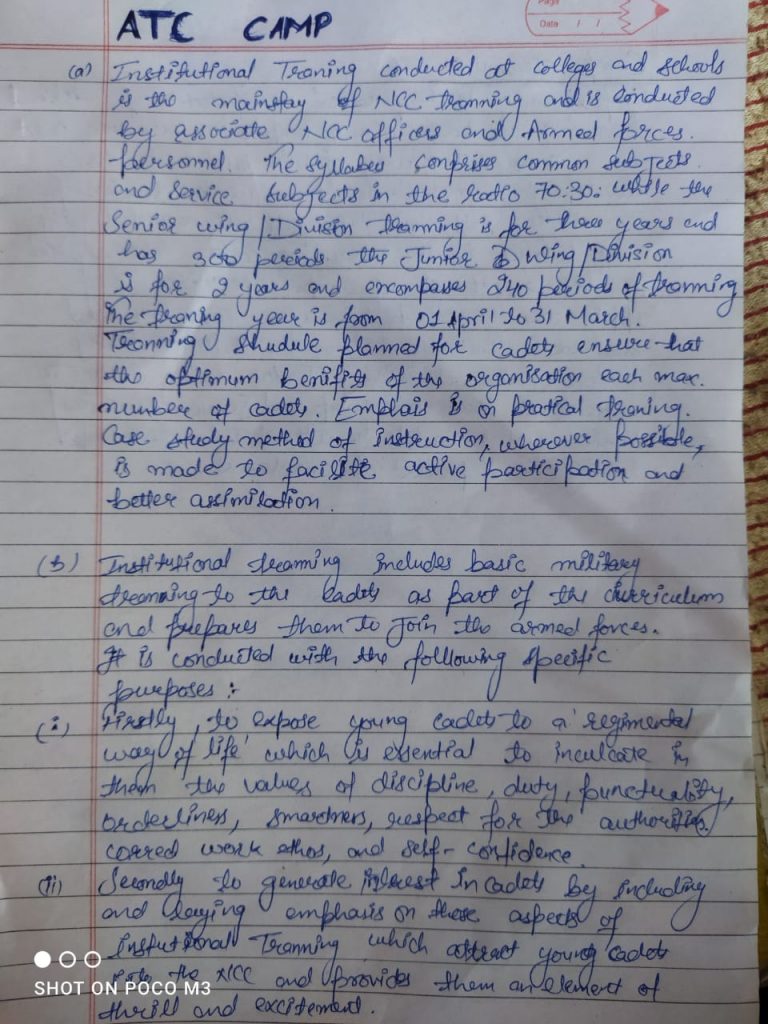 Page
Date / /
ATC CAMP
(a) Institutional Traning conducted at colleges and schools
is the mainstay of NCC tranning and is conducted
by associate NCC officers and Armed forces.
personnel. The syllabus comprises common subjects
and service subjects in the ratio 70:30: while the
Senior wing/Division tranning is for three years and
has 300 periods the Junior wing/Division
is for 2 years and encompasses 240 periods of tranning
The traning year is from 01 April to 31 March.
Tranning shudule planned for cadets ensure that
the optimum benifits of the organisation each max.
number of cadets. Emphais is on pratical traning.
Case study method of instruction, wherever possible,
is made to facilite active participation and
better assimilation.
(b) Institutional tranning includes basic military
tranning to the cadets as part of the curriculum
and prepares them to Join the armed forces.
It is conducted with the following specific
purposes :-
(i) Firstly, to expose young cadets to a 'regimental
way of life' which is essential to inculcate in
them the values of discipline, duty, punctuality,
orderliness, smartness, respect for the authorities,
corred work ethos, and self-confidence.
(ii) Secondly to generate interest in cadets by including
and laying emphasis on those aspects of
institutional Tranning which attract young cadets
into the NCC and provides them an element of
thrill and excitement.
SHOT ON POCO M3